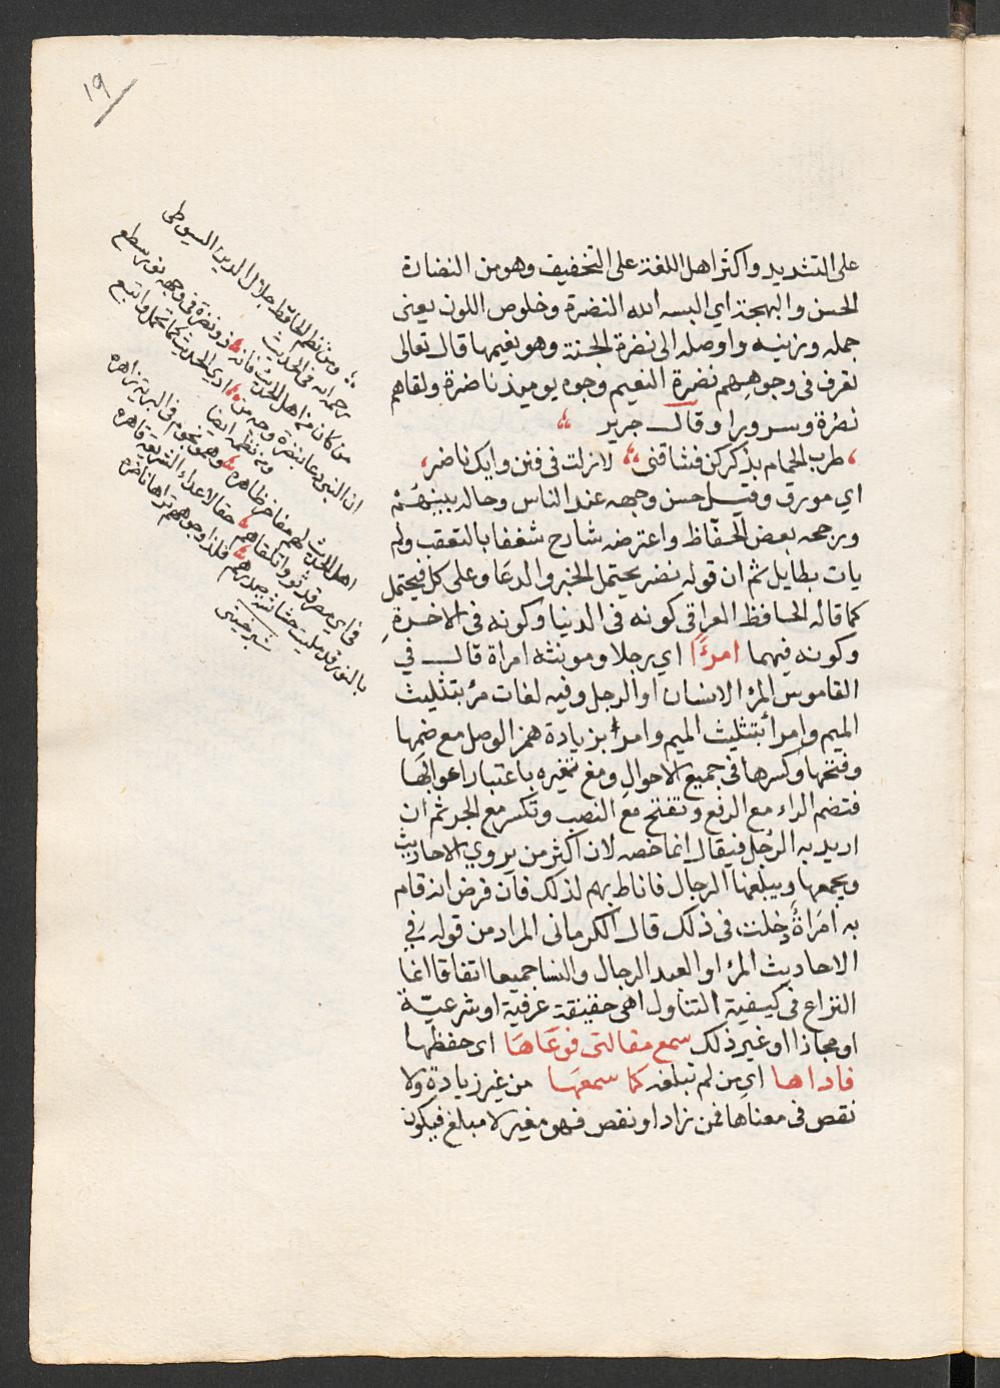 ١٩
على التشديد واكثر اهل اللغة على التخفيف وهو من النضارة
الحسن والبهجة اي البسه الله النضرة وخلوص اللون يعنى
جمله وزينه واوصله الى نضرة الجنة وهو نعيمها قال تعالى
تعرف في وجوههم نضرة النعيم وجوه يوميذ ناضرة ولقاهم
نضرة وسرورا وقال جرير
طرب الحمام بذكركن فشاقنى لازلت فى فنن وايك ناضر
اي مورق وقيل حسن وجهه عند الناس وحاله بينهم
ورجحه بعض الحفاظ واعترضه شارح شغفا بالتعقب ولم
يات بطايل ثم ان قوله نضر يحتمل الخبر والدعا وعلى كل فيحتمل
كما قاله الحافظ العراقى كونه فى الدنيا وكونه فى الاخرة
وكونه فيهما امرءًا اي رجلا ومونثه امراة قال في
القاموس المرء الانسان او الرجل وفيه لغات مرء بتثليث
الميم وامرأ بتثليث الميم وامرأ بزيادة همز الوصل مع ضمها
وفتحها وكسرها فى جميع الاحوال ومع تغيره باعتبار اعرابها
فتضم الراء مع الرفع وتفتح مع النصب وتكسر مع الجر ثم ان
اريد به الرجل فيقال انما خصه لان اكثر من يروي الاحاديث
ويجمعها ويبلغها الرجال فاناط بهم لذلك فان فرض انه قام
به امراة دخلت فى ذلك قال الكرمانى المراد من قوله في
الاحاديث المرء او العبد الرجال والنسا جميعا اتفاقا انما
النزاع فى كيفية التناول اهى حقيقة عرفية او شرعية
او مجازا او غير ذلك سمع مقالتى فوعاها اى حفظها
فاداها اي من لم تبلغه كما سمعها من غير زيادة ولا
نقص فى معناها فمن زاد او نقص فهو مغير لا مبلغ فيكون
ومن نظم الحافظ جلال الدين السيوطى
رحمه الله فى الحديث
من كان من اهل الحديث فانه ذو نضرة فى وجهه نور سطع
ان النبى دعا بنضرة وجه من ادى الحديث كما تحمل واتبع
ومن نظمه ايضا
اهل الحديث لهم مفاخر ظاهره وهم نجوم فى البرية زاهره
فى اي مصر قد ثووا تلقاهم حقا لاعداء الشريعة قاهره
بالنور قد ملئت حشاشة صدرهم فلذا وجوههم تراها ناضره
شبرخيتى